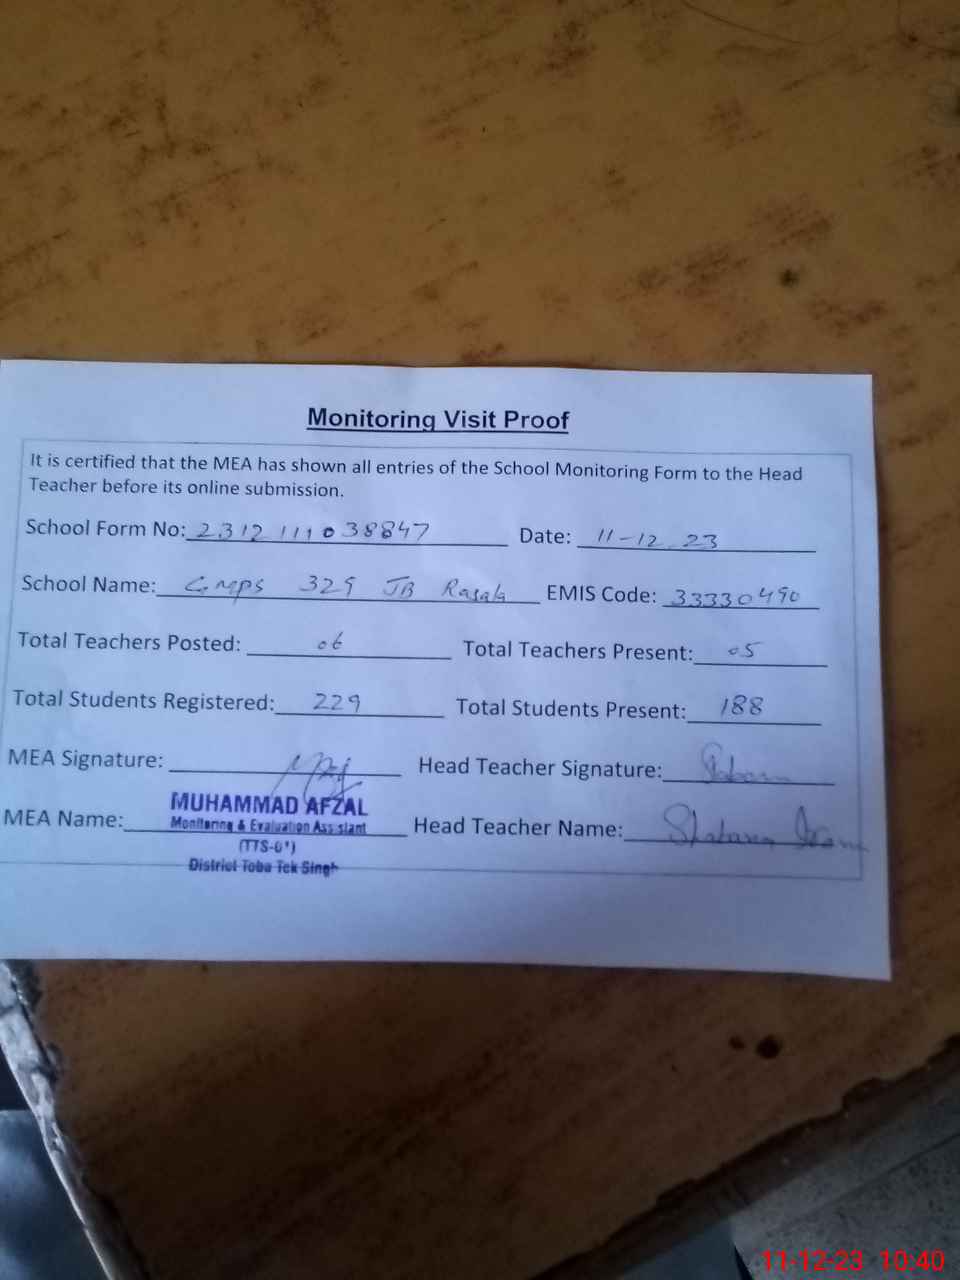 Monitoring Visit Proof
It is certified that the MEA has shown all entries of the School Monitoring Form to the Head
Teacher before its online submission.
School Form No: 2312 111038847 Date: 11-12-23
School Name: GMPS 329 JB Rasala EMIS Code: 33330490
Total Teachers Posted: 06 Total Teachers Present: 05
Total Students Registered: 229 Total Students Present: 188
MEA Signature: Head Teacher Signature:
MEA Name: MUHAMMAD AFZAL Head Teacher Name: Shabana
Monitoring & Evaluation Assistant
District Toba Tek Singh
11-12-23 10:40